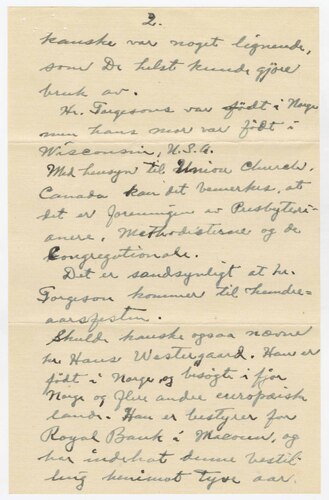 2.
kanske var noget lignende,
som De helst kunde gjøre
bruk av.
Hr. Torgesons var født i Norge
men hans mor var født i
Wisconsin, U.S.A.
Med hensyn til Union Church,
Canada kan det bemerkes, at
det er foreningen av Presbyteri-
anere, Methodisterne og de
Congregationale.
Det er sandsynligt at hr.
Torgeson kommer til hundre-
aarsfesten.
Skulde kanske ogsaa nævne
hr. Hans Westergaard. Han er
født i Norge og besøgte i fjor
Norge og flere andre europæisk
lande. Han er bestyrer for
Royal Bank i Macoun, og
har indehat denne vestil-
ling henimot tyve aar.